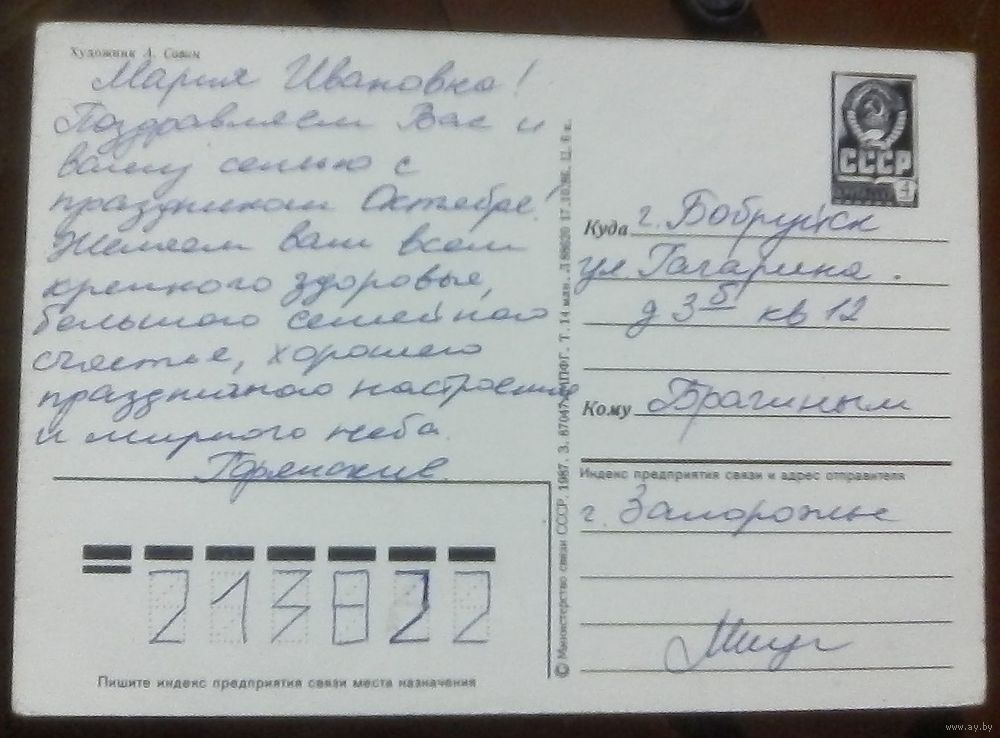 Художник А. Савин
Мария Ивановна!
Поздравляем Вас и
вашу семью с
праздником Октября!
Желаем вам всем
крепкого здоровья,
большого семейного
счастья, хорошего
праздничного настроения
и мирного неба.
СССР
4
Куда г. Бобруйск
ул Гагарина.
д 3б кв 12
Кому Брагиным
Индекс предприятия связи и адрес отправителя
г. Запорожье
213822
Пишите индекс предприятия связи места назначения
© Министерство связи СССР. 1987. З. МПФГ. Т. 14 млн. Ц. 6 к.
www.ay.by